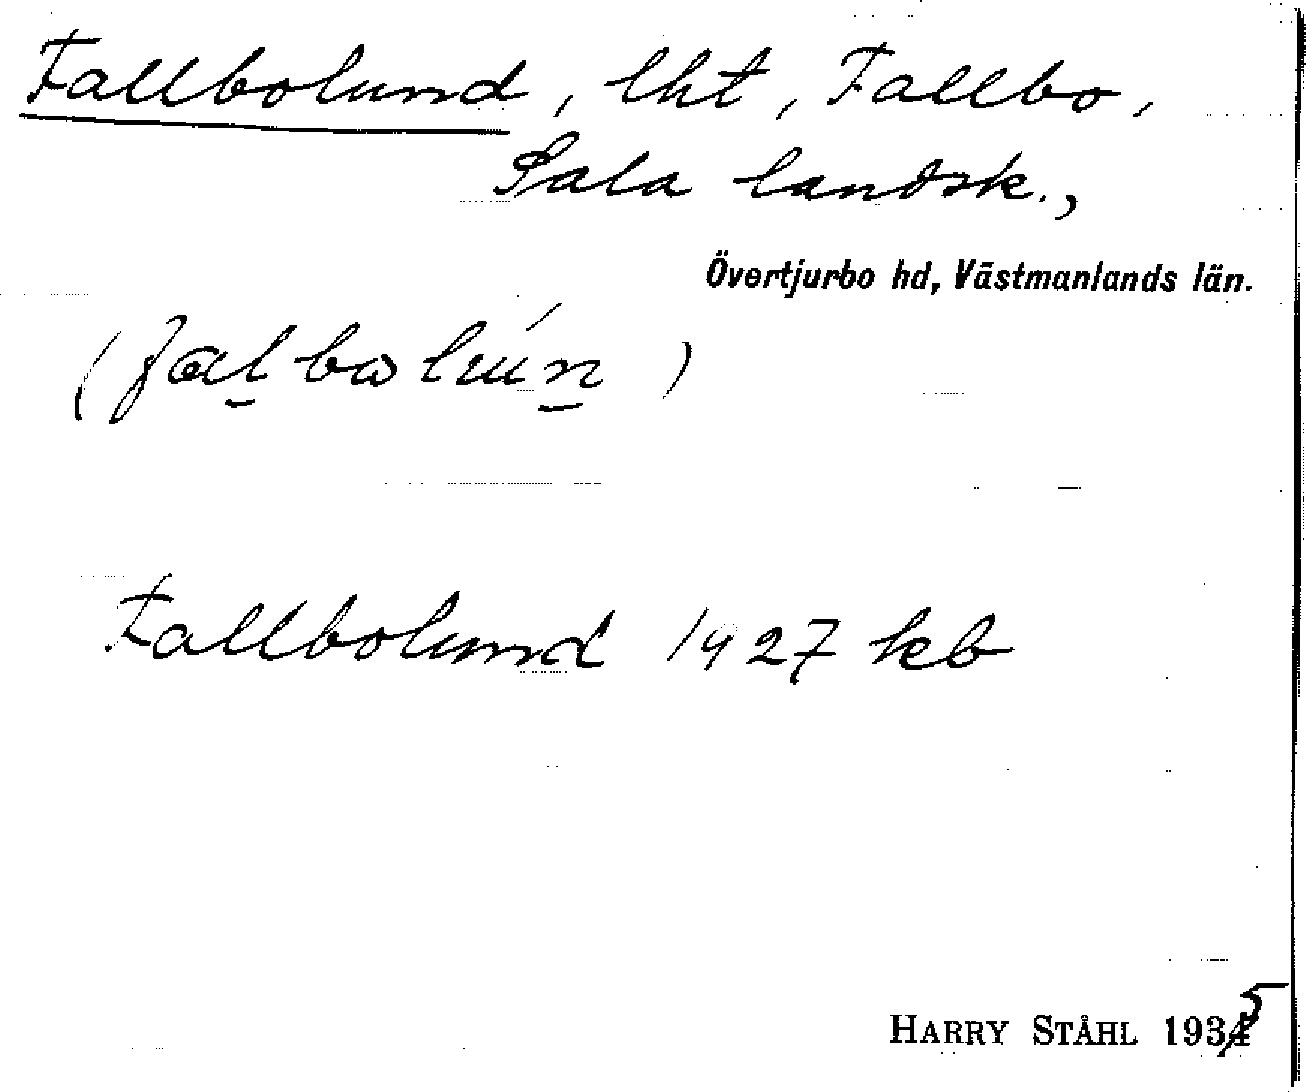 Fallbolund, lht, Fallbo,
Sala landsk.,
Övertjurbo hd, Västmanlands län.
Fallbolund 1927 kb
HARRY STÅHL 1935